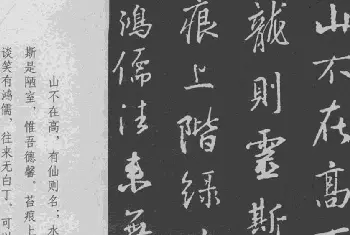 山不在高
龍則靈斯
痕上階緑
鴻儒往来無
山不在高，有仙则名；水
斯是陋室，惟吾德馨。苔痕上
谈笑有鸿儒，往来无白丁。可